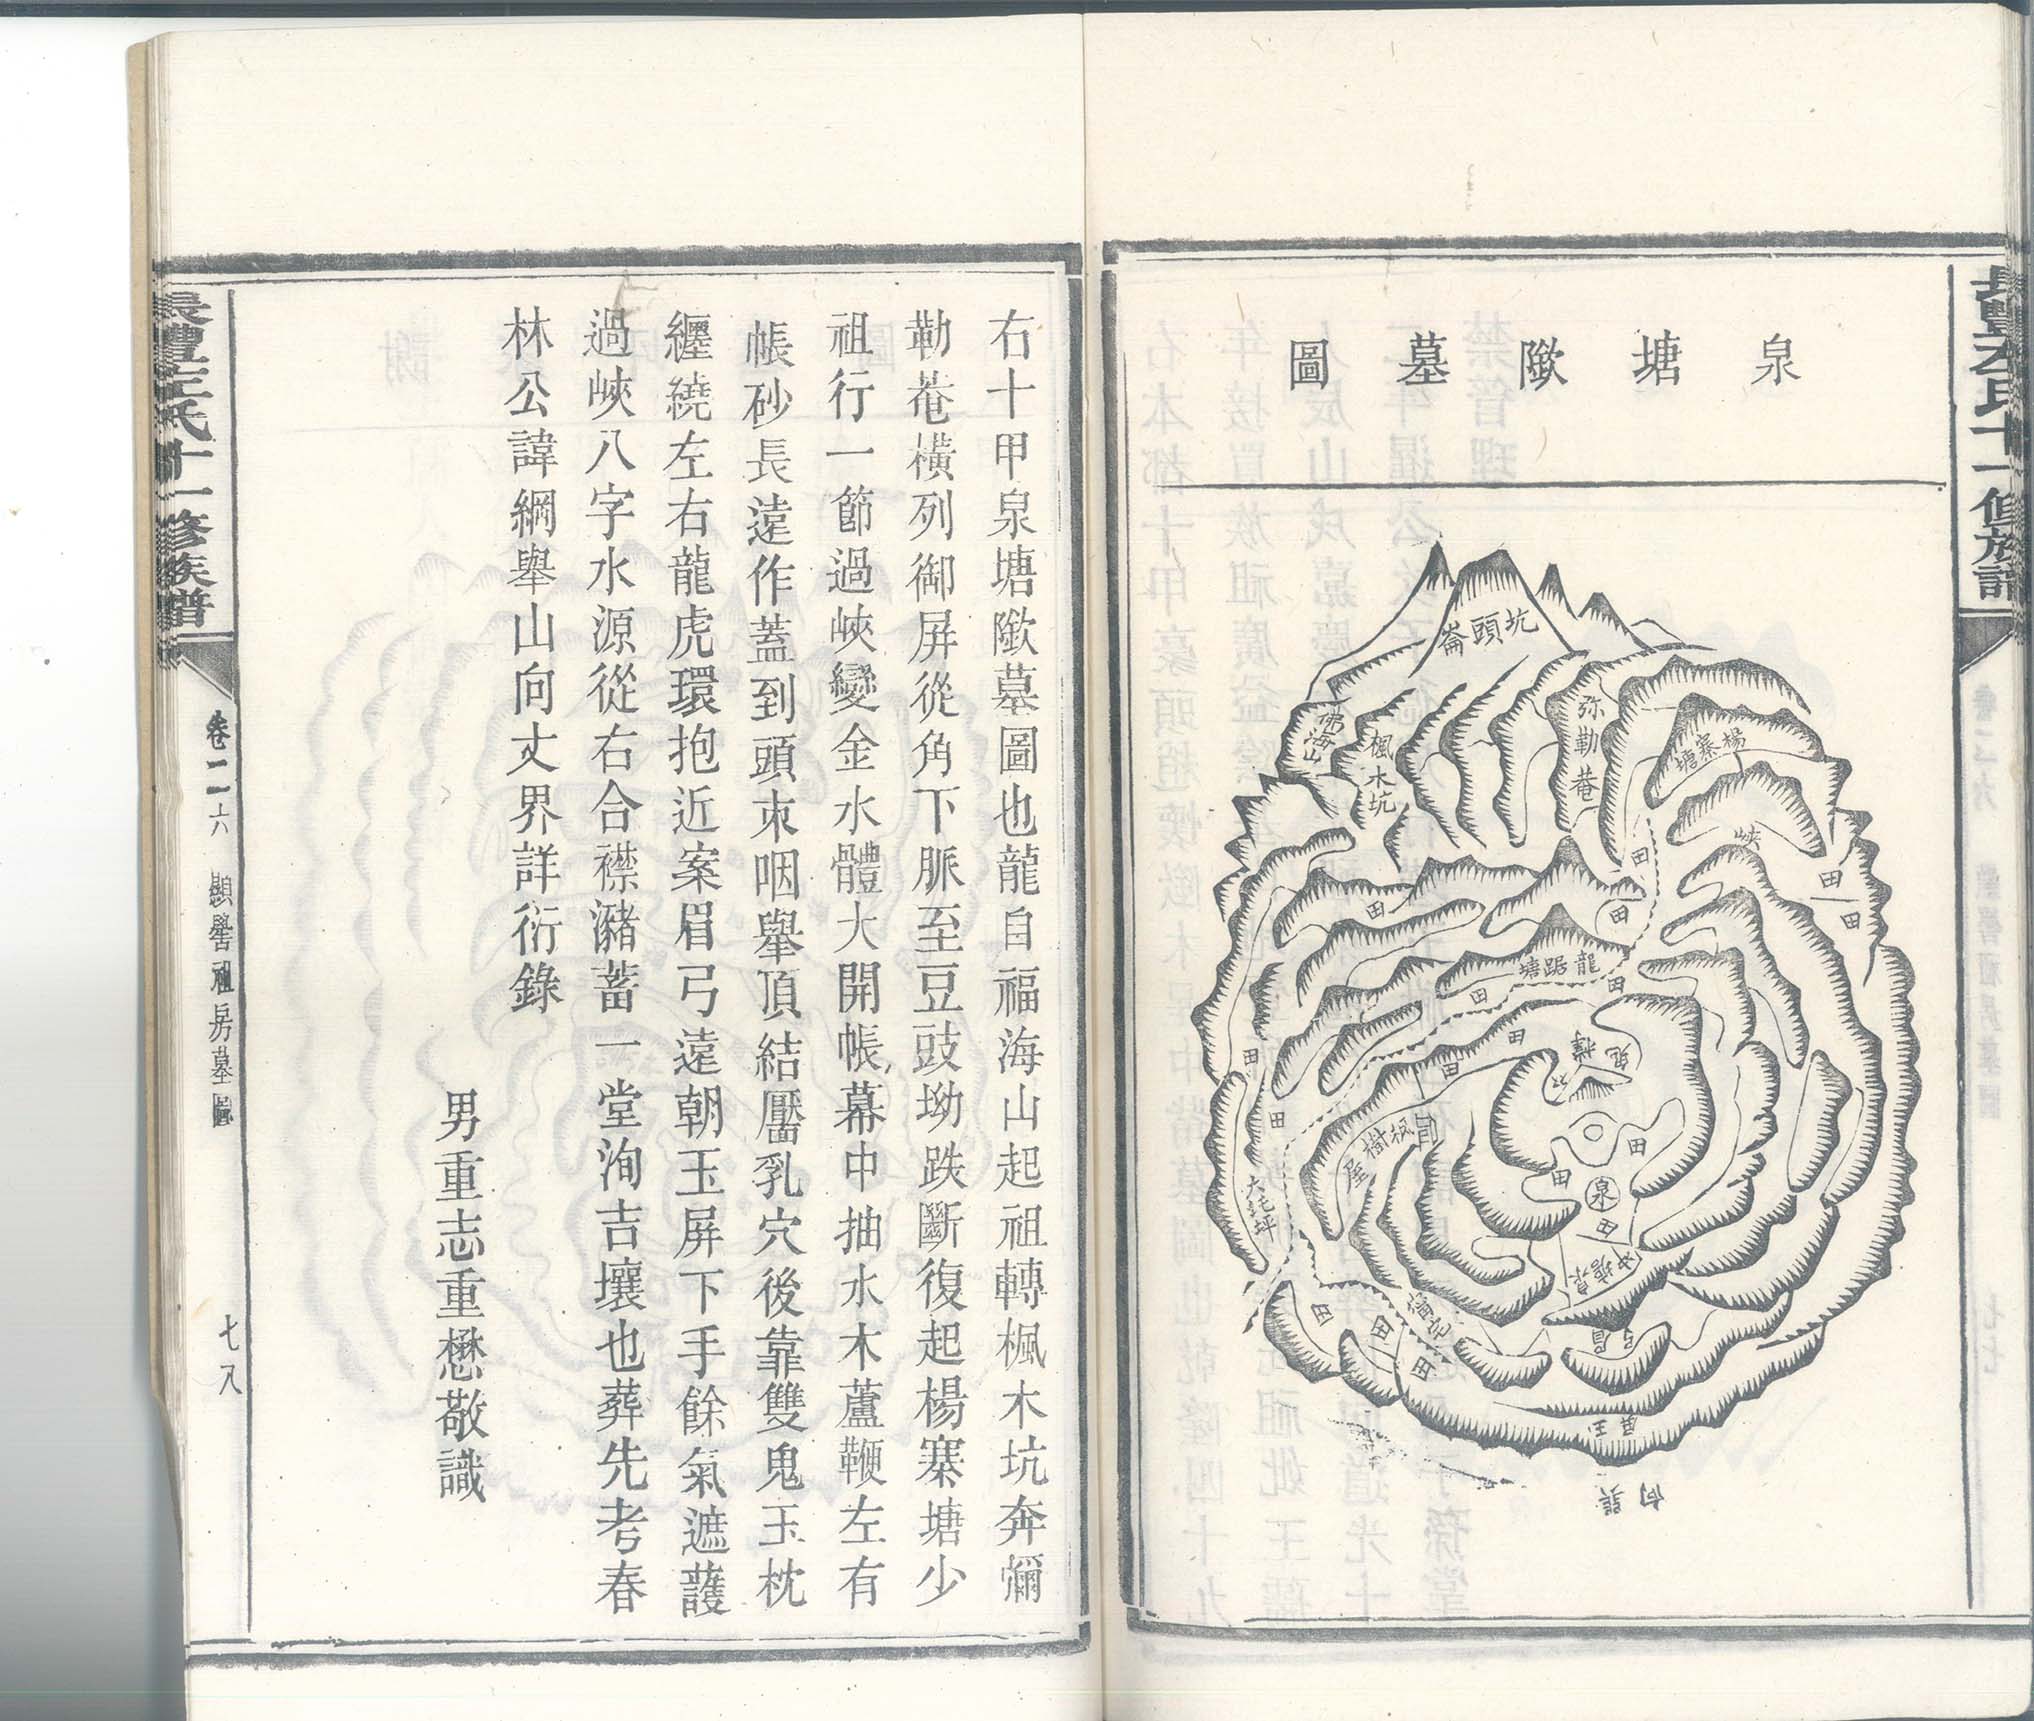 泉塘歘墓圖
坑頭崙
佛海山
楓木坑
弥勒菴
楊寨塘
峽
田
田
田
田
田
龍踞塘
田
田
田
田
田
田
楓樹屋
大坪
田
田
泉
田
泉塘冲
田
田
田
眉弓
巽向
右十甲泉塘歘墓圖也龍自福海山起祖轉楓木坑奔彌
勒菴橫列御屏從角下脈至豆豉坳跌斷復起楊寨塘少
祖行一節過峽變金水體大開帳幕中抽水木蘆鞭左有
帳砂長遠作蓋到頭朿咽舉頂結靨乳穴後靠雙鬼玉枕
纏繞左右龍虎環抱近案眉弓遠朝玉屏下手餘氣遮護
過峽八字水源從右合襟瀦蓄一堂洵吉壤也葬先考春
林公諱綱舉山向丈界詳衍錄
男重志重懋敬識
長豐左氏十一修族譜
卷二六
顯譽祖房墓圖
七八